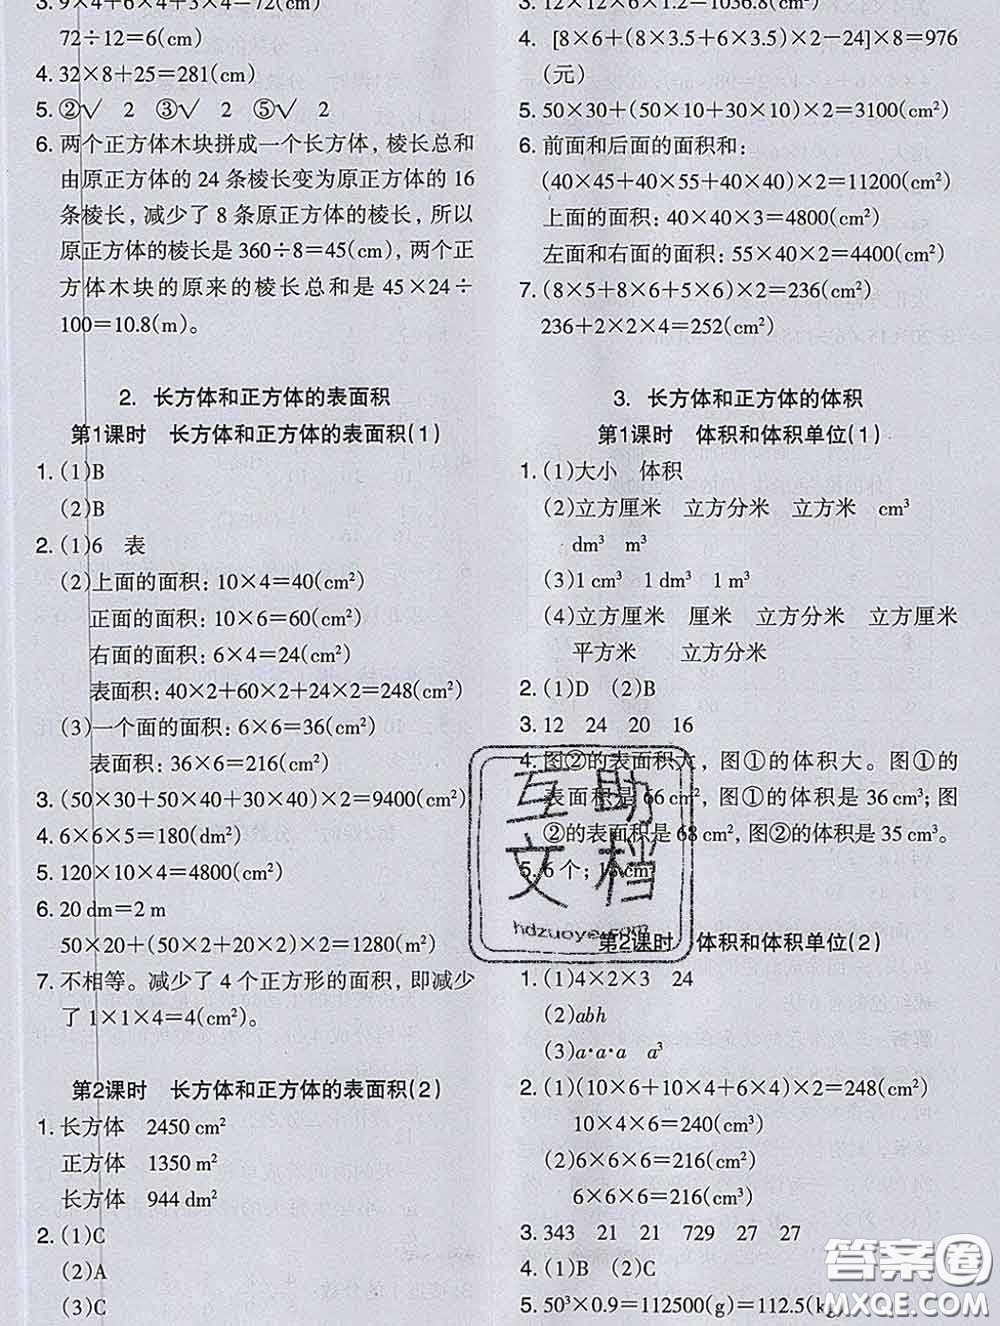 3. 9×4+6×4+3×4=72
72÷12=6(cm)
4. 32×8+25=281(cm)
5. ②√ 2 ③√ 2 ⑤√ 2
6. 两个正方体木块拼成一个长方体,棱长总和
由原正方体的 24 条棱长变为原正方体的 16
条棱长,减少了 8 条原正方体的棱长,所以
原正方体的棱长是 360÷8=45(cm),两个正
方体木块的原来的棱长总和是 45×24÷
100=10.8(m)。
2. 长方体和正方体的表面积
第1课时 长方体和正方体的表面积(1)
1. (1)B
(2)B
2. (1)6 表
(2)上面的面积:10×4=40(cm²)
正面的面积:10×6=60(cm²)
右面的面积:6×4=24(cm²)
表面积:40×2+60×2+24×2=248(cm²)
(3)一个面的面积:6×6=36(cm²)
表面积:36×6=216(cm²)
3. (50×30+50×40+30×40)×2=9400(cm²)
4. 6×6×5=180(dm²)
5. 120×10×4=4800(cm²)
6. 20 dm=2 m
50×20+(50×2+20×2)×2=1280(m²)
7. 不相等。减少了 4 个正方形的面积,即减少
了 1×1×4=4(cm²)。
第2课时 长方体和正方体的表面积(2)
1. 长方体 2450 cm²
正方体 1350 m²
长方体 944 dm²
2. (1)C
(2)A
(3)C
3. 12×12×6×1.2=1036.8(cm²)
4. [8×6+(8×3.5+6×3.5)×2−24]×8=976
(元)
5. 50×30+(50×10+30×10)×2=3100(cm²)
6. 前面和后面的面积和:
(40×45+40×55+40×40)×2=11200(cm²)
上面的面积:40×40×3=4800(cm²)
左面和右面的面积:55×40×2=4400(cm²)
7. (8×5+8×6+5×6)×2=236(cm²)
236+2×2×4=252(cm²)
3. 长方体和正方体的体积
第1课时 体积和体积单位(1)
1. (1)大小 体积
(2)立方厘米 立方分米 立方米 cm³
dm³ m³
(3)1 cm³ 1 dm³ 1 m³
(4)立方厘米 厘米 立方分米 立方厘米
平方米 立方分米
2. (1)D (2)B
3. 12 24 20 16
4. 图②的表面积大,图①的体积大。图①的
表面积是 66 cm²,图①的体积是 36 cm³;图
②的表面积是 68 cm²,图②的体积是 35 cm³。
5. 6 个;18 cm²
第2课时 体积和体积单位(2)
1. (1)4×2×3 24
(2)abh
(3)a·a·a a³
2. (1)(10×6+10×4+6×4)×2=248(cm²)
10×4×6=240(cm³)
(2)6×6×6=216(cm²)
6×6×6=216(cm³)
3. 343 21 21 729 27 27
4. (1)B (2)C
5. 50³×0.9=112500(g)=112.5(kg)
互助
文档
hdzuoye.com
答案圈
MXQE.COM